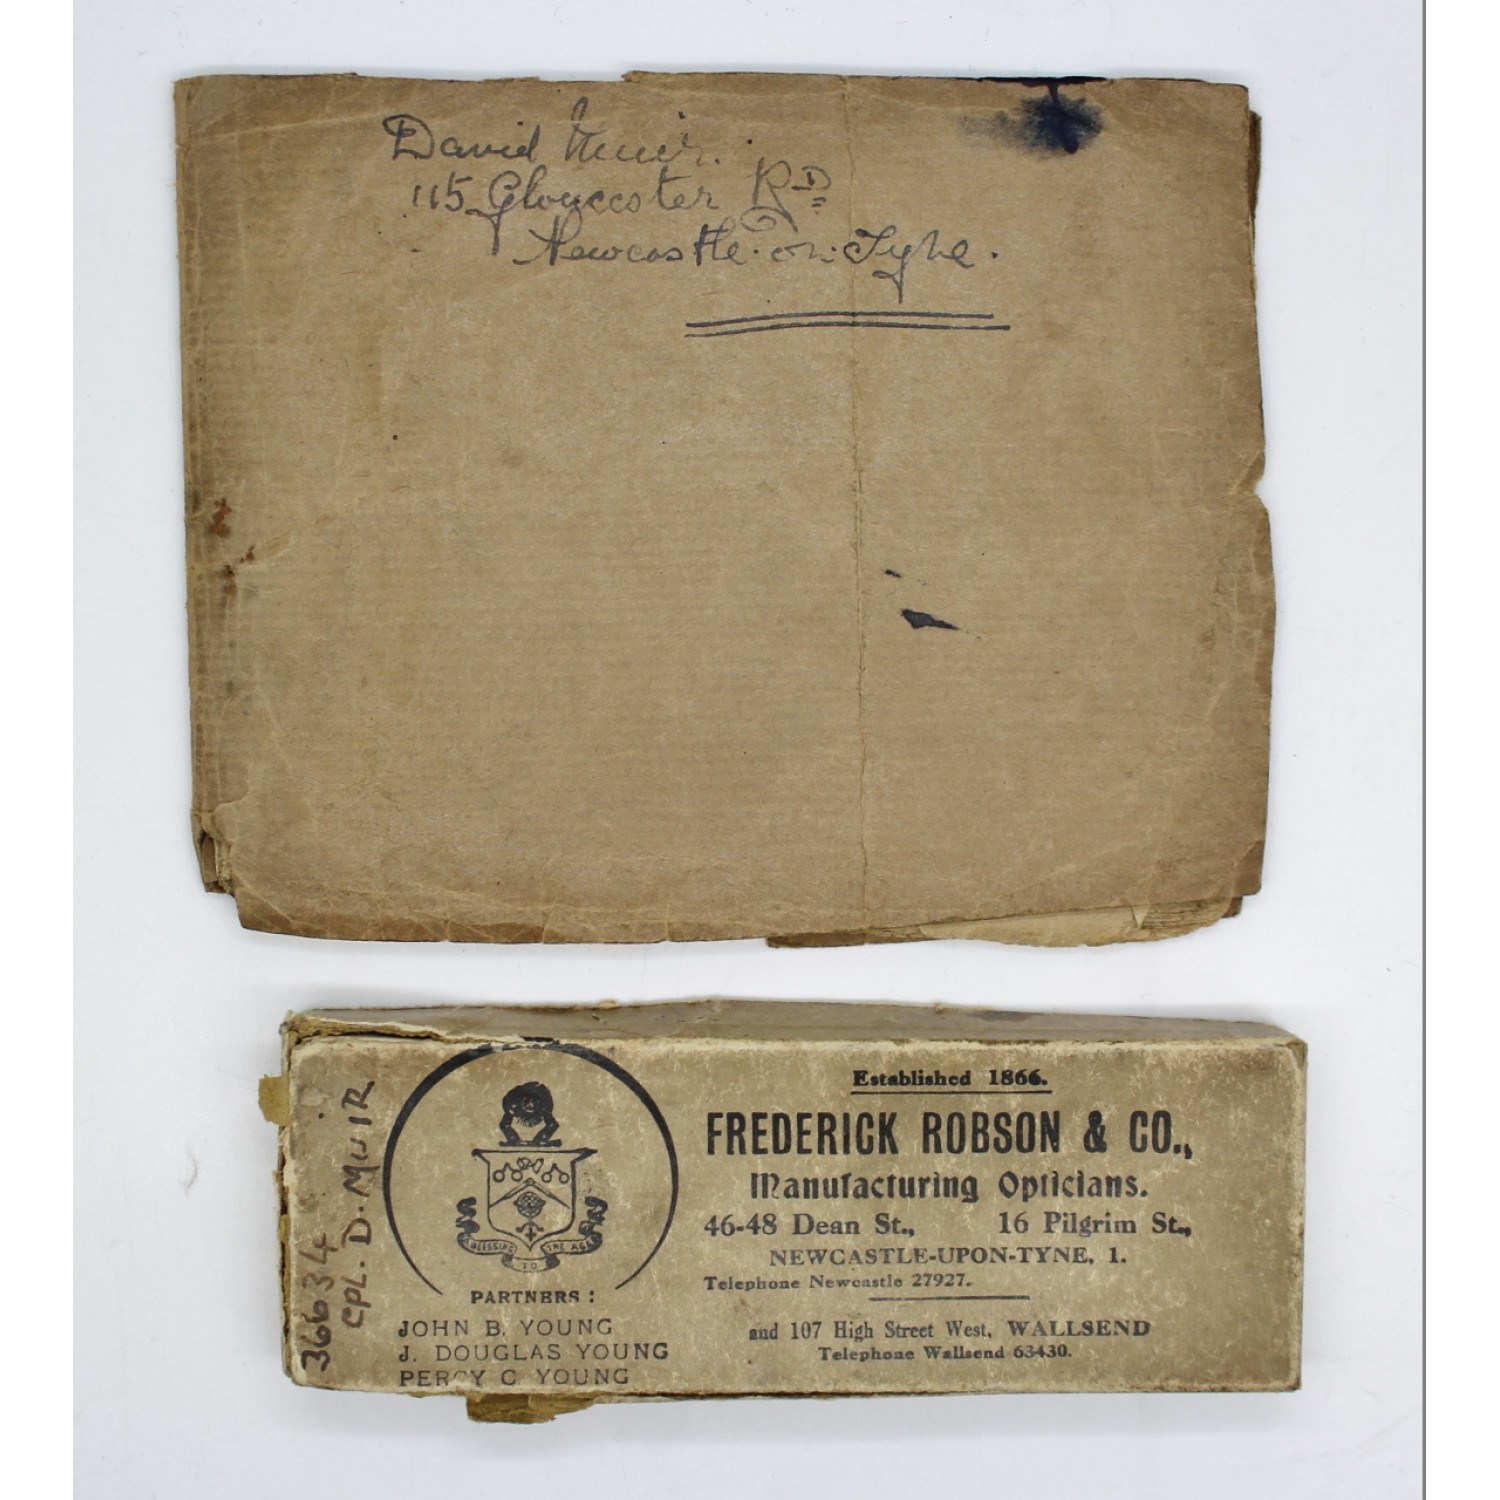 David Muir.
115 Gloucester RD
Newcastle-on-Tyne.
36634
CPL. D. MUIR
A BLESSING TO THE AGED
PARTNERS:
JOHN B. YOUNG
J. DOUGLAS YOUNG
PERCY C YOUNG
Established 1866.
FREDERICK ROBSON & CO.,
Manufacturing Opticians.
46-48 Dean St., 16 Pilgrim St.,
NEWCASTLE-UPON-TYNE, 1.
Telephone Newcastle 27927.
and 107 High Street West, WALLSEND
Telephone Wallsend 63430.